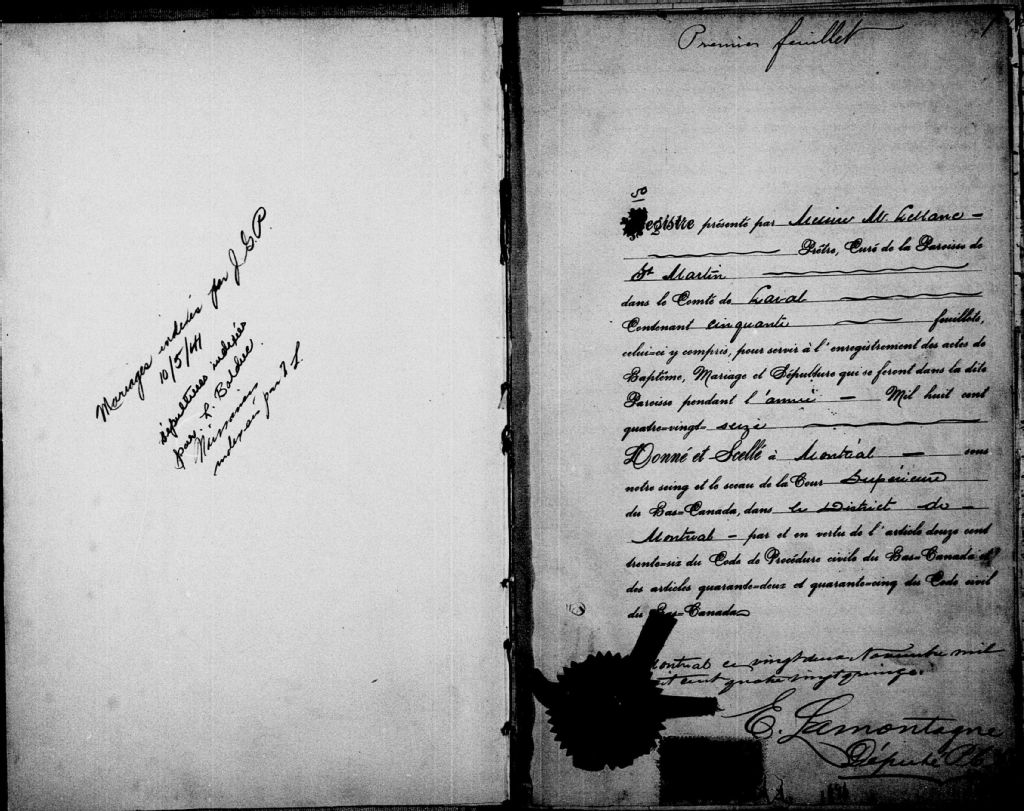 Mariages indexés par J.G.P.
10/5/41
sépultures indexées
par L. Bolduc
par J L
Premier feuillet
1
50
Registre présenté par Messire M. Leblanc
Prêtre, Curé de la Paroisse de
St Martin
dans le Comté de Laval
Contenant cinquante feuillets,
celui-ci y compris, pour servir à l'enregistrement des actes de
Baptême, Mariage et Sépulture qui se feront dans la dite
Paroisse pendant l'année — Mil huit cent
quatre-vingt-seize
Donné et Scellé à Montréal — sous
notre seing et le sceau de la Cour Supérieure
du Bas-Canada, dans le District de —
Montréal — par et en vertu de l'article douze cent
trente-six du Code de Procédure civile du Bas-Canada et
des articles quarante-deux et quarante-cinq du Code civil
du Bas-Canada
Montréal ce vingt deux Novembre mil
huit cent quatre vingt quinze.
E. Lamontagne
Député P.C.